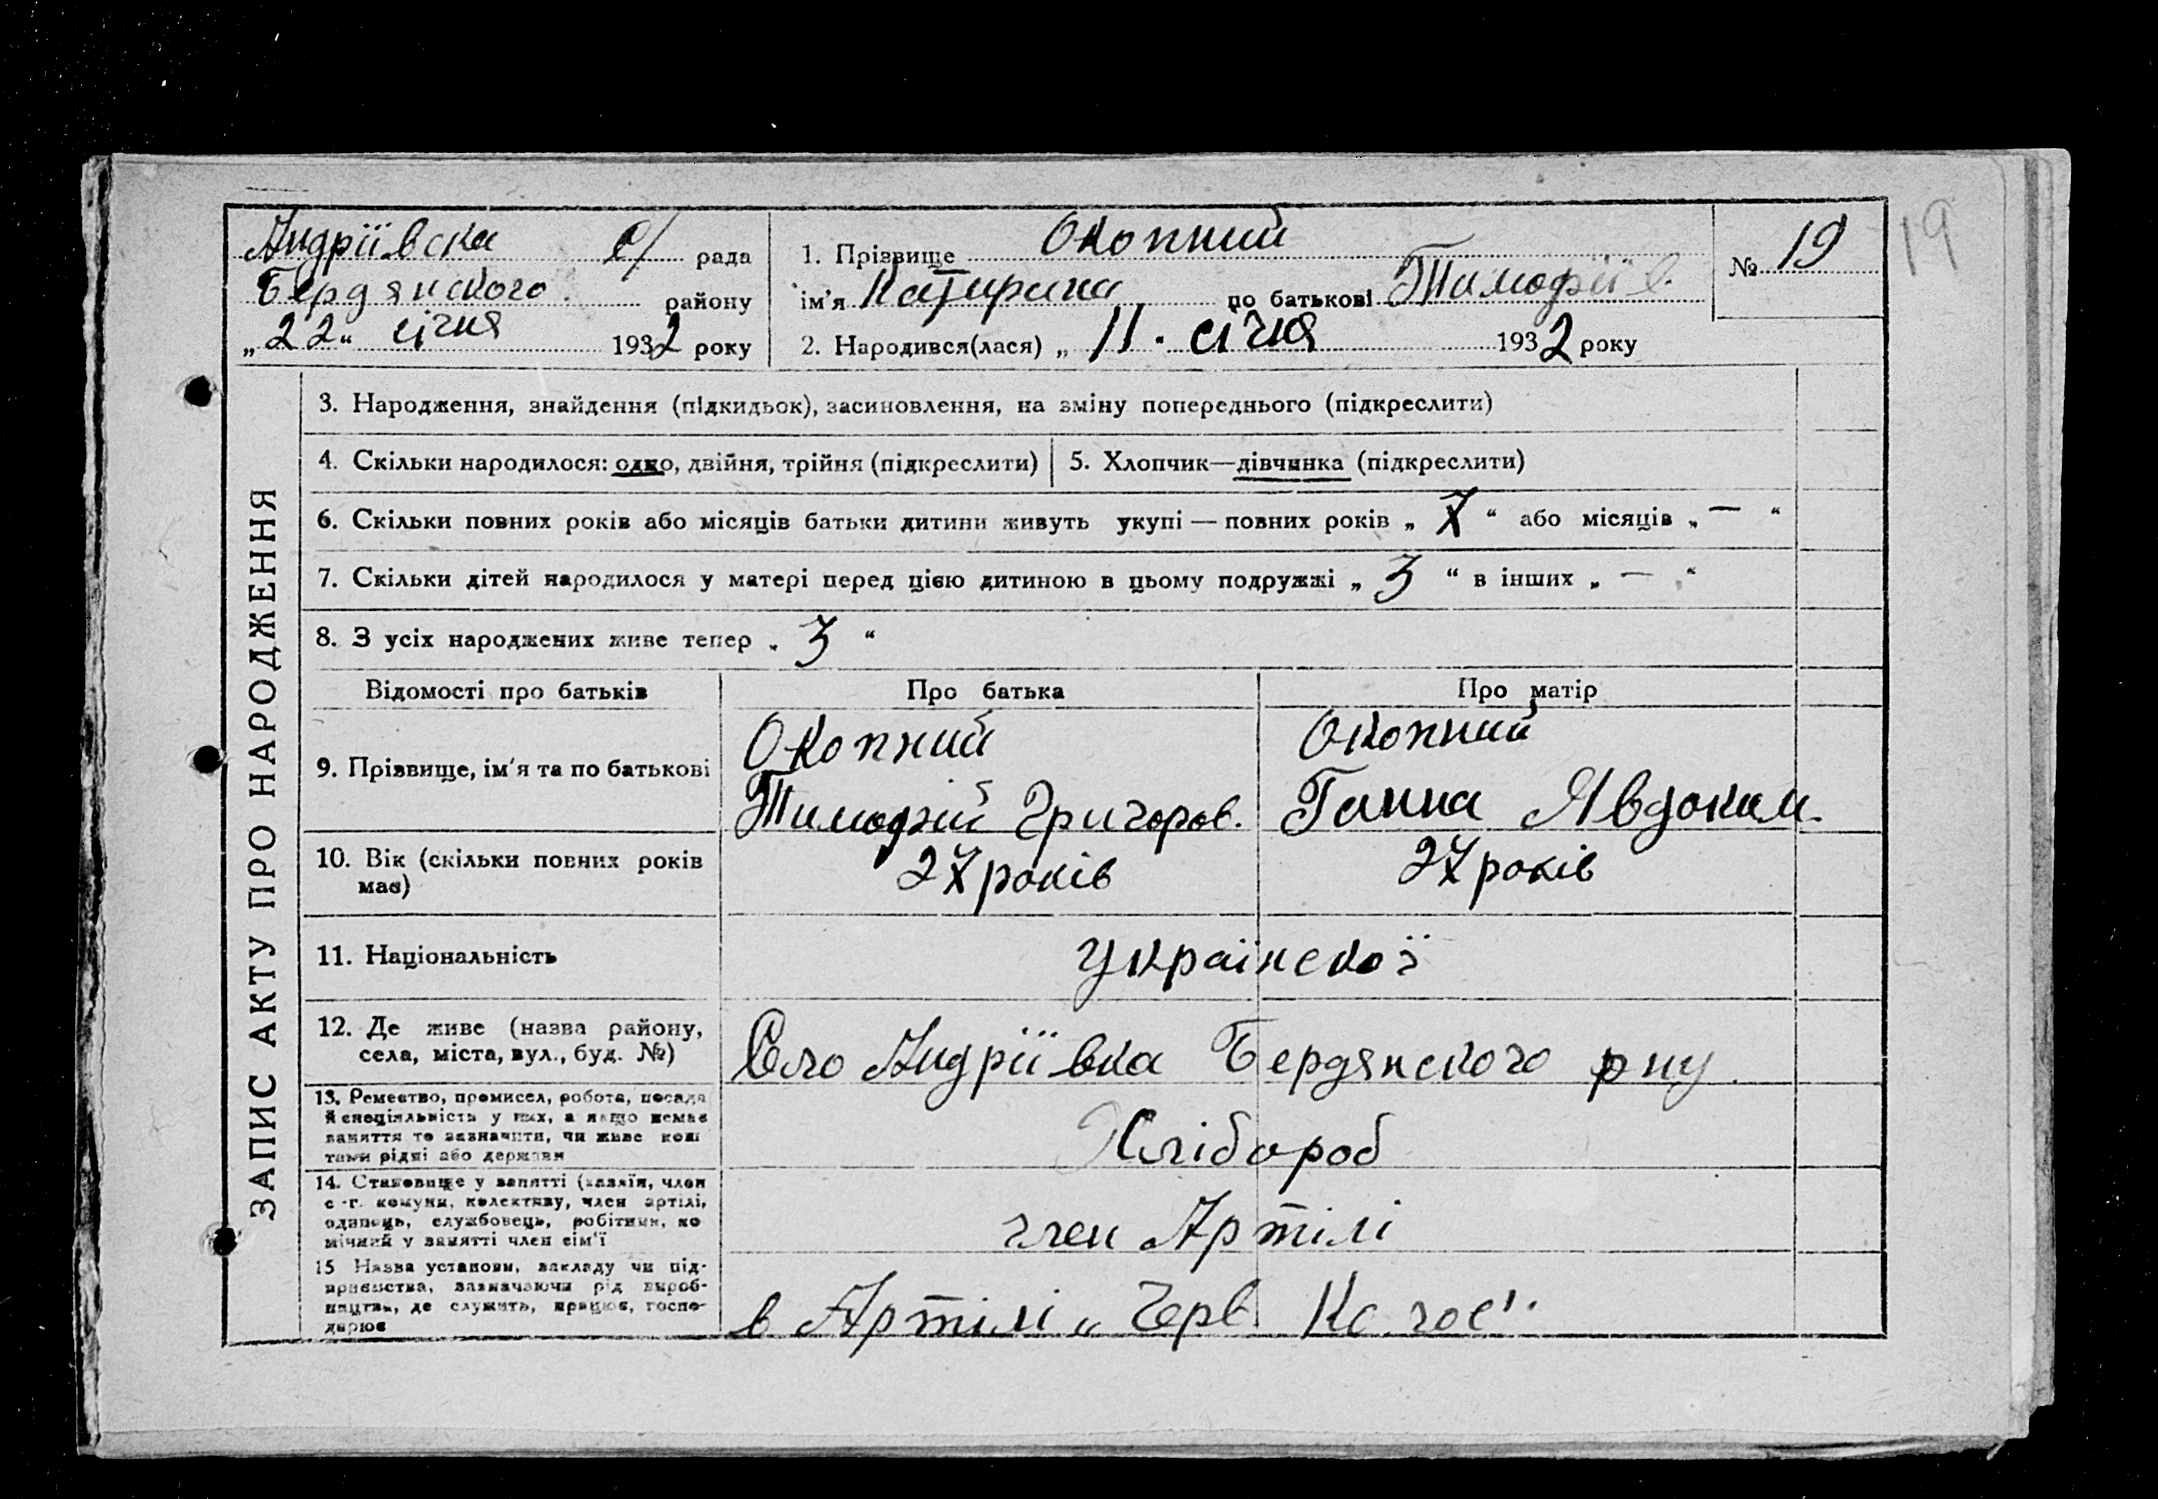 Андріївска с/ рада
Бердянского району
„22“ січня 1932 року
1. Прізвище Окопний
ім'я Катирина по батькові Тимофіїв.
2. Народився(лася) „ 11. січня 1932 року
№ 19
19
ЗАПИС АКТУ ПРО НАРОДЖЕННЯ
3. Народження, знайдення (підкидьок), засиновлення, на зміну попереднього (підкреслити)
4. Скільки народилося: одно, двійня, трійня (підкреслити)
5. Хлопчик—дівчинка (підкреслити)
6. Скільки повних років або місяців батьки дитини живуть укупі — повних років „ 7 “ або місяців „ — “
7. Скільки дітей народилося у матері перед цією дитиною в цьому подружжі „ 3 “ в інших „ — “
8. З усіх народжених живе тепер „ 3 “
Відомості про батьків
Про батька
Про матір
9. Прізвище, ім'я та по батькові
Окопний
Тимофій Григоров.
Окопний
Ганна Явдоким.
10. Вік (скільки повних років
має)
27 років
27 років
11. Національність
Українскої
12. Де живе (назва району,
села, міста, вул., буд. №)
Село Андріївка Бердянского рну.
13. Ремество, промисел, робота, посада
й спеціяльність у них, а якщо немає
заняття то зазначити, чи живе кош
тами рідні або держави
Хлібороб
14. Становище у занятті (хазяїн, член
с.-г. комуни, колективу, член артілі,
одинець, службовець, робітник, по
мічний у занятті член сім'ї
член Артілі
15 Назва установи, закладу чи під-
приємства, зазначаючи рід вироб-
ництва, де служить, працює, госпо-
дарює
в Артілі „ Черв. Колос".